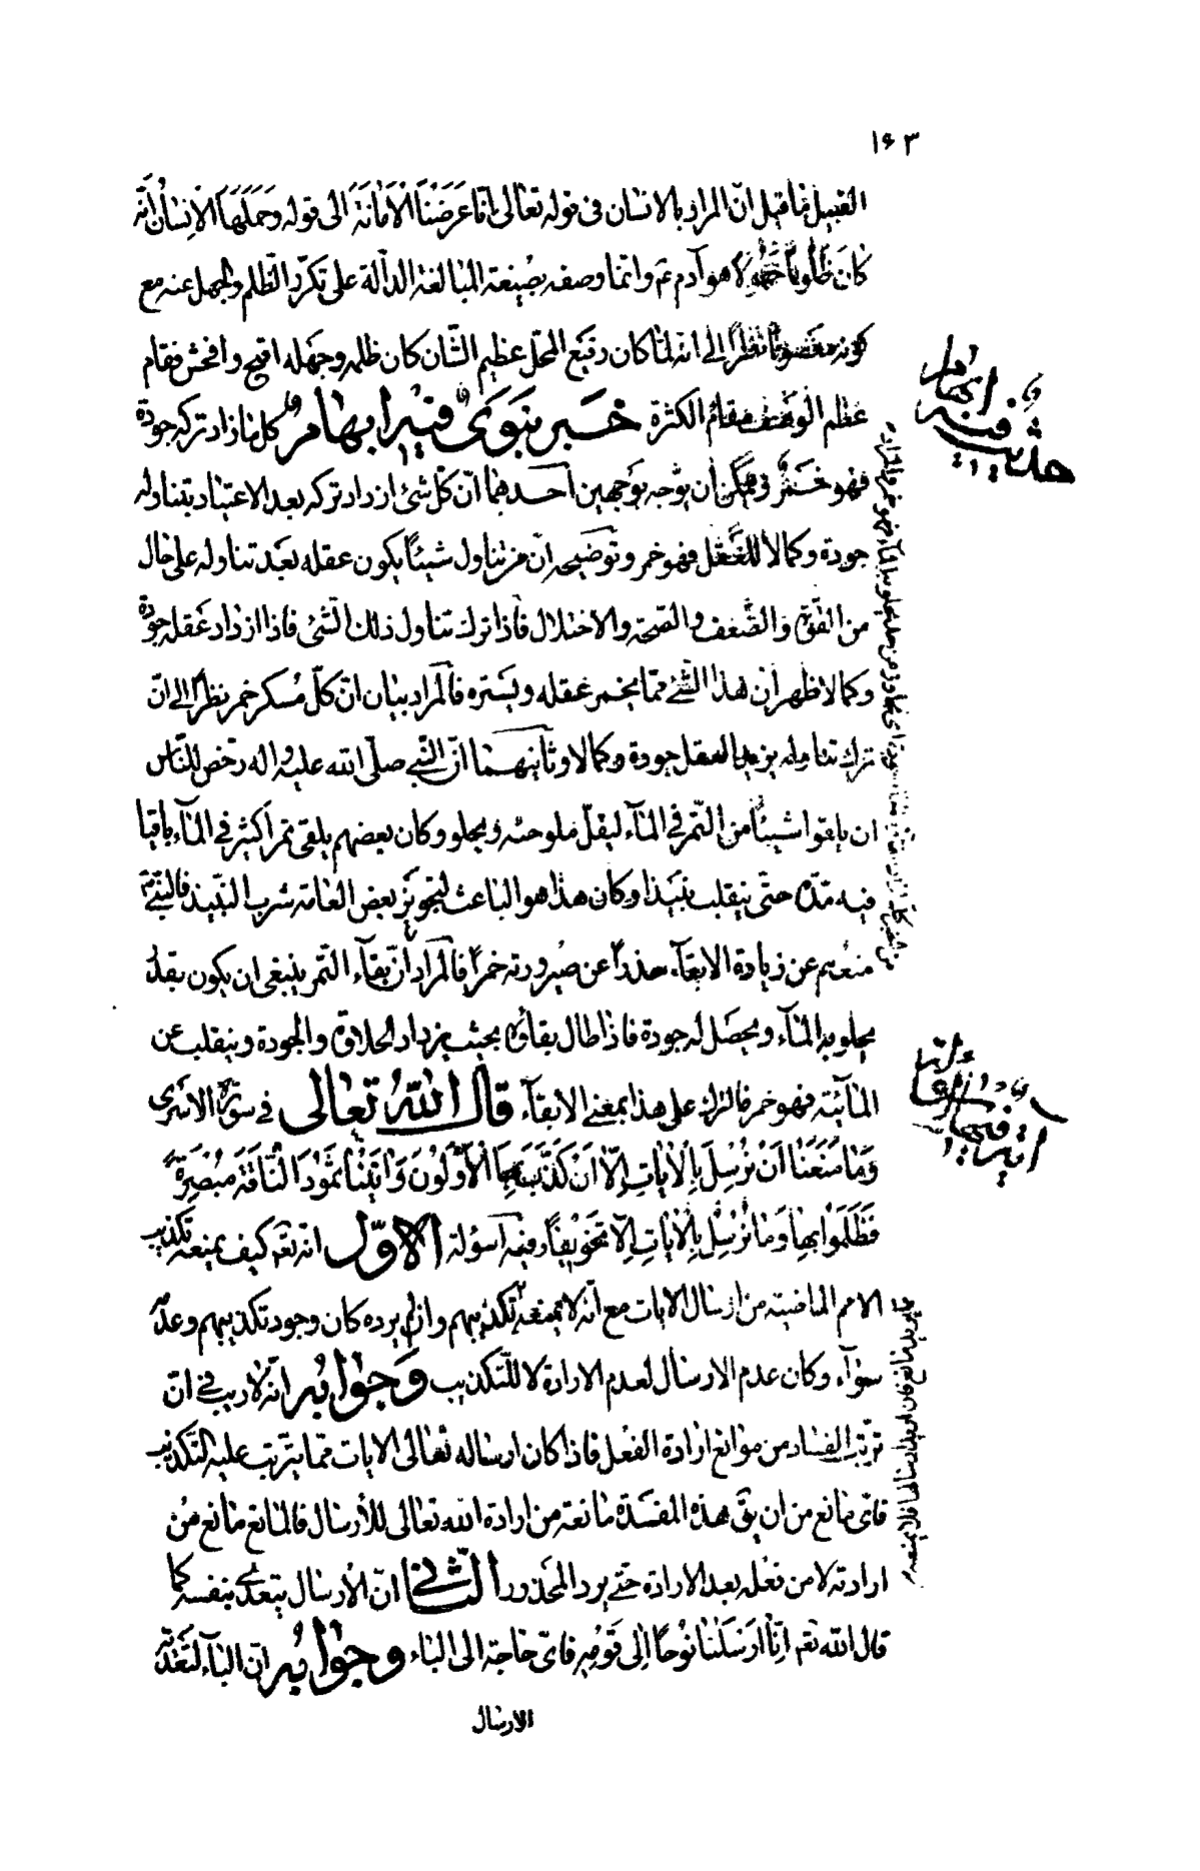 ١۶٣
القبيل ما قيل انّ المراد بالانسان فى قوله تعالى انّا عَرَضْنَا الْاَمانَةَ الى قوله وَحَمَلَهَا الْاِنسانُ اِنَّهُ
كانَ ظَلُوماً جَهُولاً هو آدم ع‍م وانّما وصفه بصيغة المبالغة الدالّة على تكرّر الظّلم والجهل عنه مع
كونه معصوماً نظراً الى انّه لمّا كان رفيع المحلّ عظيم الشّان كان ظلمه وجهله اقبح وافحش فقام
عظم الوصف مقام الكثرة خبر نبوى فيه ابهام كل ما زاد تركه جودة
فهو خمر ويمكن ان يوجّه بوجهين احدهما انّ كلّ شئ ازداد تركه بعد الاعتياد بتناوله
جودة وكمالا للعقل فهو خمر وتوضيحه انّ من تناول شيئاً يكون عقله بعد تناوله على حال
من القوّة والضّعف والصّحة والاختلال فاذا ترك تناول ذلك الشّئ فاذا ازداد عقله جودة
وكمالا ظهر ان هذا الشّئ ممّا يخمر عقله ويستره فالمراد بيان انّ كلّ مسكر خمر نظراً الى انّ
ترك تناوله يزيد العقل جودة وكمالا وثانيهما انّ النّبى صلّى الله عليه واله رخّص للنّاس
ان يلقوا شيئاً من التّمر فى المآء ليقلّ ملوحته ويحلو وكان بعضهم يلقى تمراً كثير فى المآء باقيا
فيه مدّة حتّى ينقلب نبيذا وكان هذا هو الباعث لتجويز بعض العامّة شرب النّبيذ فالنّبىّ
منعهم عن زيادة الابقآء حذراً عن صيرورته خمراً فالمراد انّ بقآء التّمر ينبغى ان يكون بقدر
يحلو به المآء ويحصل له جودة فاذا طال بقاؤه بحيث يزداد الحلاوة والجودة وينقلب عن
المآئيّة فهو خمر فالترك على هذا بمعنى الابقآء قال الله تعالى فى سورة الاسرى
وَما مَنَعَنا اَنْ نُرْسِلَ بِالْاياتِ اِلاّ اَنْ كَذَّبَ بِهَا الْاَوَّلُونَ وَاتَيْنا ثَمُودَ النّاقَةَ مُبْصِرَةً
فَظَلَمُوا بِها وَما نُرْسِلُ بِالْاياتِ اِلاّ تَخْويفاً وفيه اسؤلة الاوّل انه تع‍ كيف يمنعه تكذيب
الامم الماضية من ارسال الايات مع انّه لا يمنعه تكذيبهم وان لم يرده كان وجود تكذيبهم وعدمه
سوآء وكان عدم الارسال لعدم الارادة لا للتكذيب وجوابه انّه لا ريب فى انّ
ترتّب الفساد من موانع ارادة الفعل فاذا كان ارساله تعالى الايات ممّا يترتب عليه التكذيب
فاىّ مانع من ان يق هذه المفسدة مانعة من ارادة الله تعالى للأرسال فالمانع مانع من
ارادته لا من فعله بعد الارادة حتّى يرد المحذور الثّانى انّ الأرسال يتعدّى بنفسه كما
قال الله تع‍ انّا ارسلنا نوحاً الى قومه فاىّ حاجة الى الباء وجوابه انّ البآء لتعدية
الارسال
حديث فيه ابهام